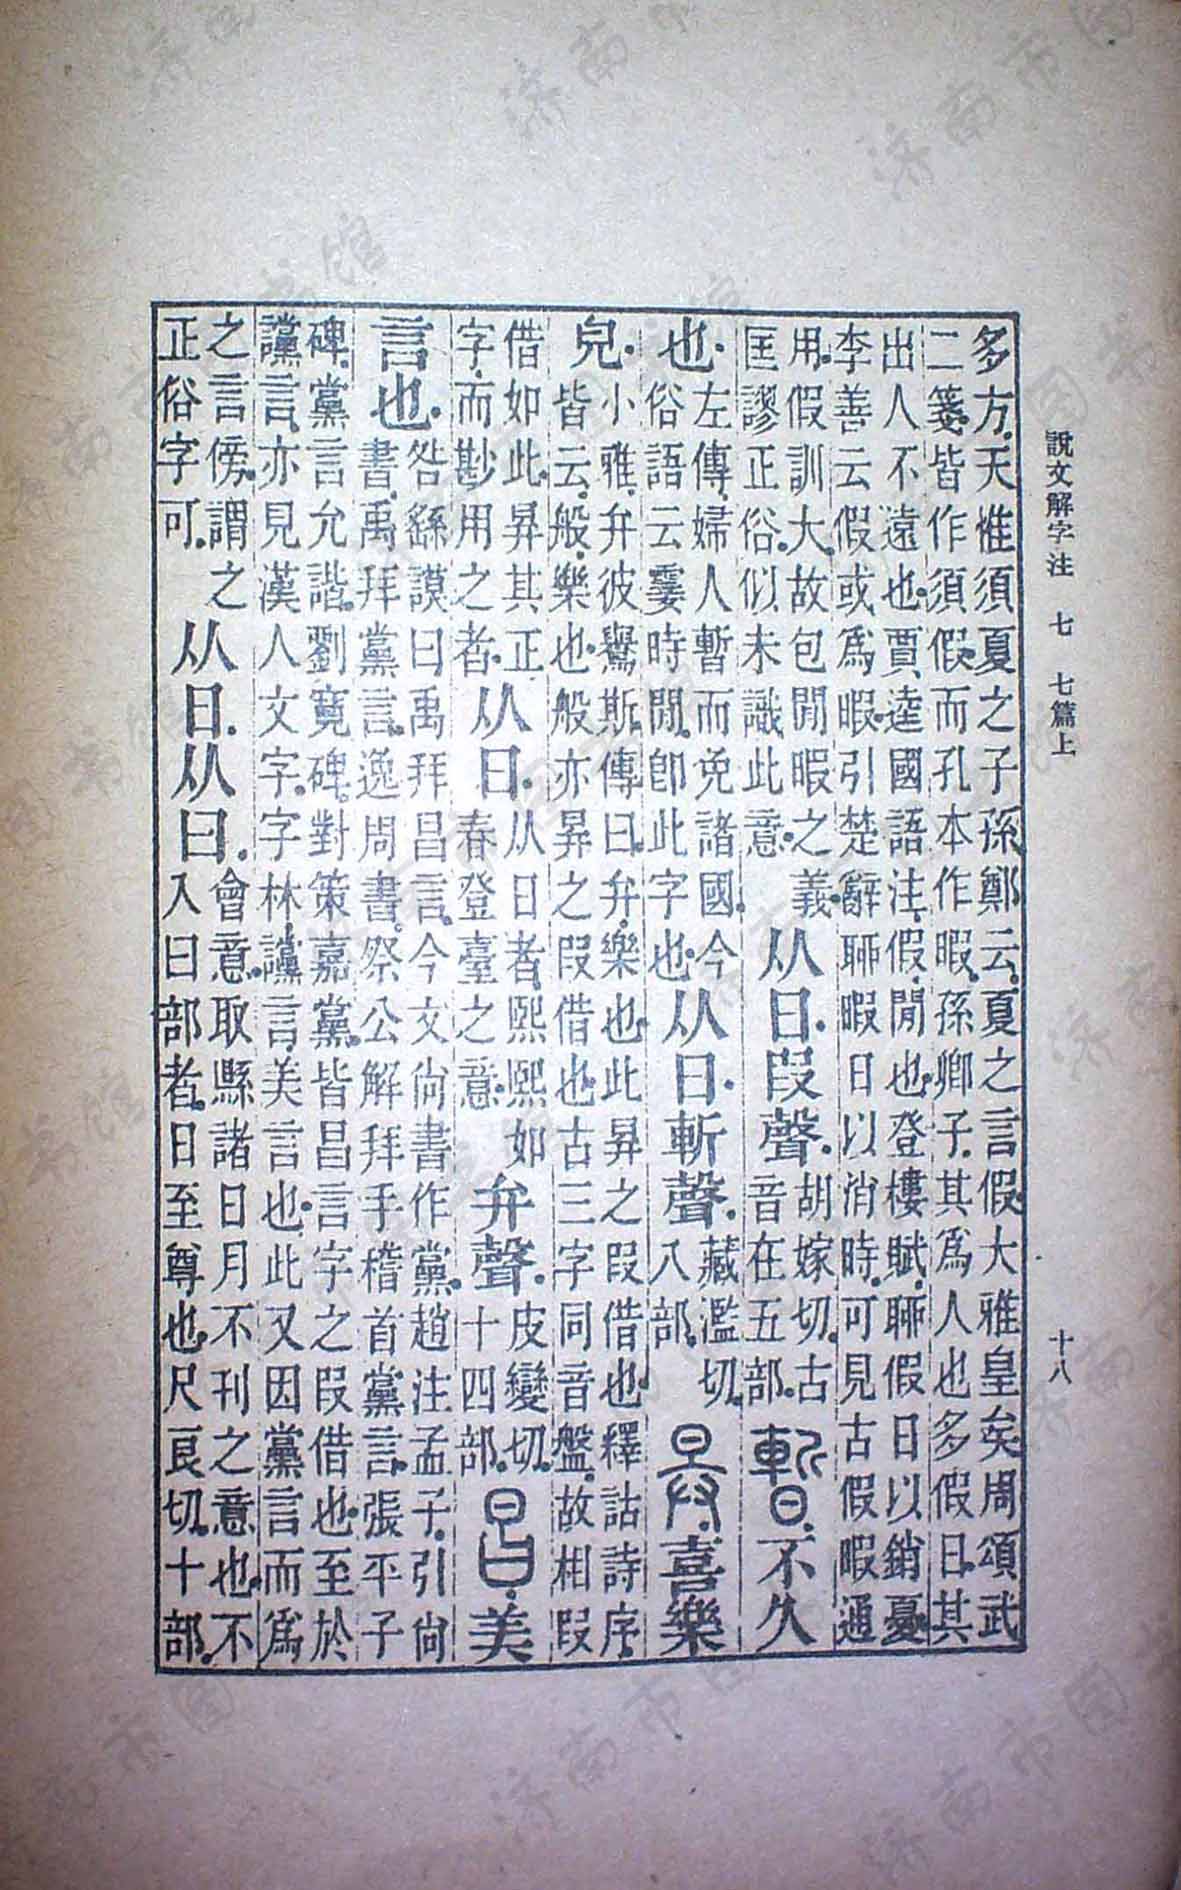 說文解字注 七 七篇上
十八
多方。天惟須夏之子孫鄭云。夏之言假。大雅皇矣周頌武
二箋。皆作須假。而孔本作暇。孫卿子。其爲人也多假日。其
出人不遠也。賈逵國語注。假。閒也。登樓賦。聊假日以銷憂。
李善云假或爲暇。引楚辭聊暇日以消時。可見古假暇通
用。假訓大。故包閒暇之義。
匡謬正俗。似未識此意。
从日。叚聲。
胡嫁切。古
音在五部。
暫。不久
也。
左傳。婦人暫而免諸國。今
俗語云霎時閒。卽此字也。
从日。斬聲。
藏濫切。
八部。
昪。喜樂
皃。
小雅。弁彼鸒斯。傳曰。弁。樂也。此昪之叚借也。釋詁詩序。
皆云。般。樂也。般亦昪之叚借也。古三字同音。盤。故相叚
借如此。昪其正
字。而尟用之者。
从日。
从日者。熙熙如
春登臺之意。
弁聲。
皮變切。
十四部。
昌。美
言也。
咎繇謨曰禹拜昌言。今文尙書作黨。趙注孟子。引尙
書。禹拜黨言。逸周書。祭公解拜手稽首黨言。張平子
碑。黨言允諧。劉寬碑。對策嘉黨。皆昌言字之叚借也。至於
讜言。亦見漢人文字。字林。讜言。美言也。此又因黨言而爲
之言傍。謂之
正俗字可。
从日。从曰。
會意。取縣諸日月不刊之意也。不
入曰部者。日至尊也。尺良切。十部。